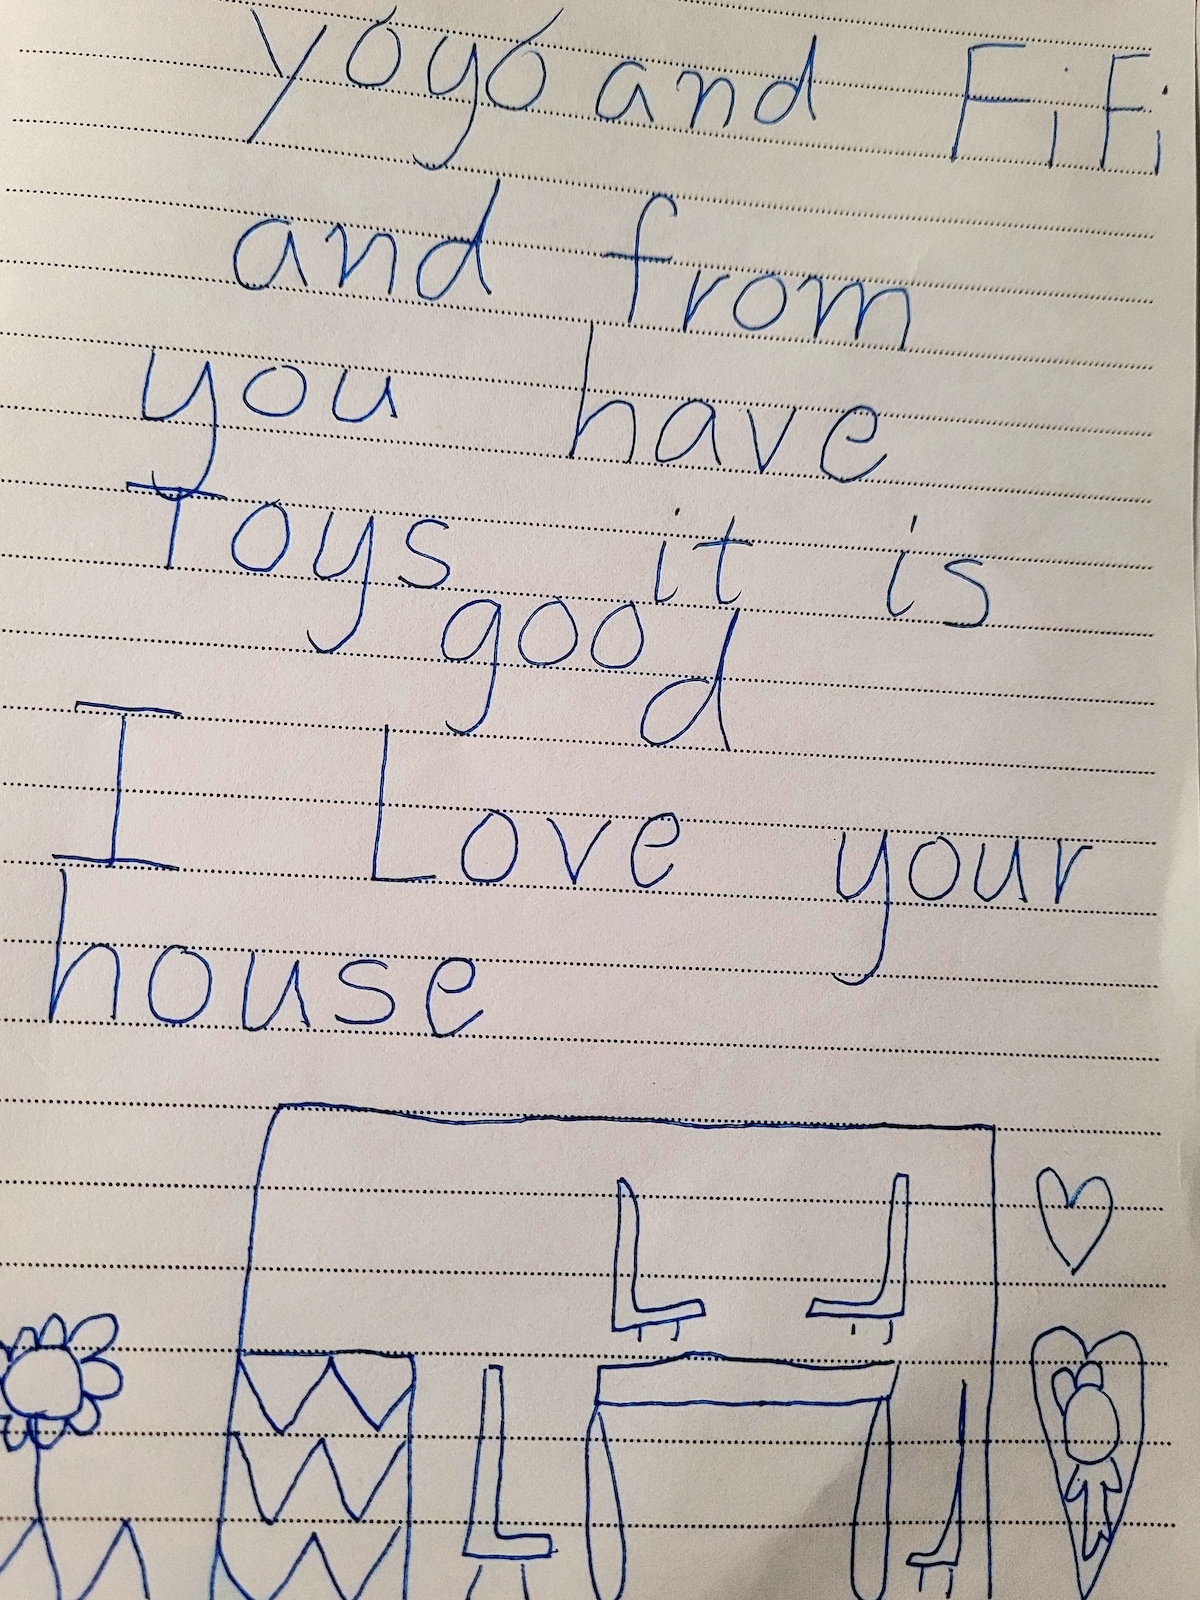 yoyo and FiFi
and from
you have
Toys it is
good
I Love your
house